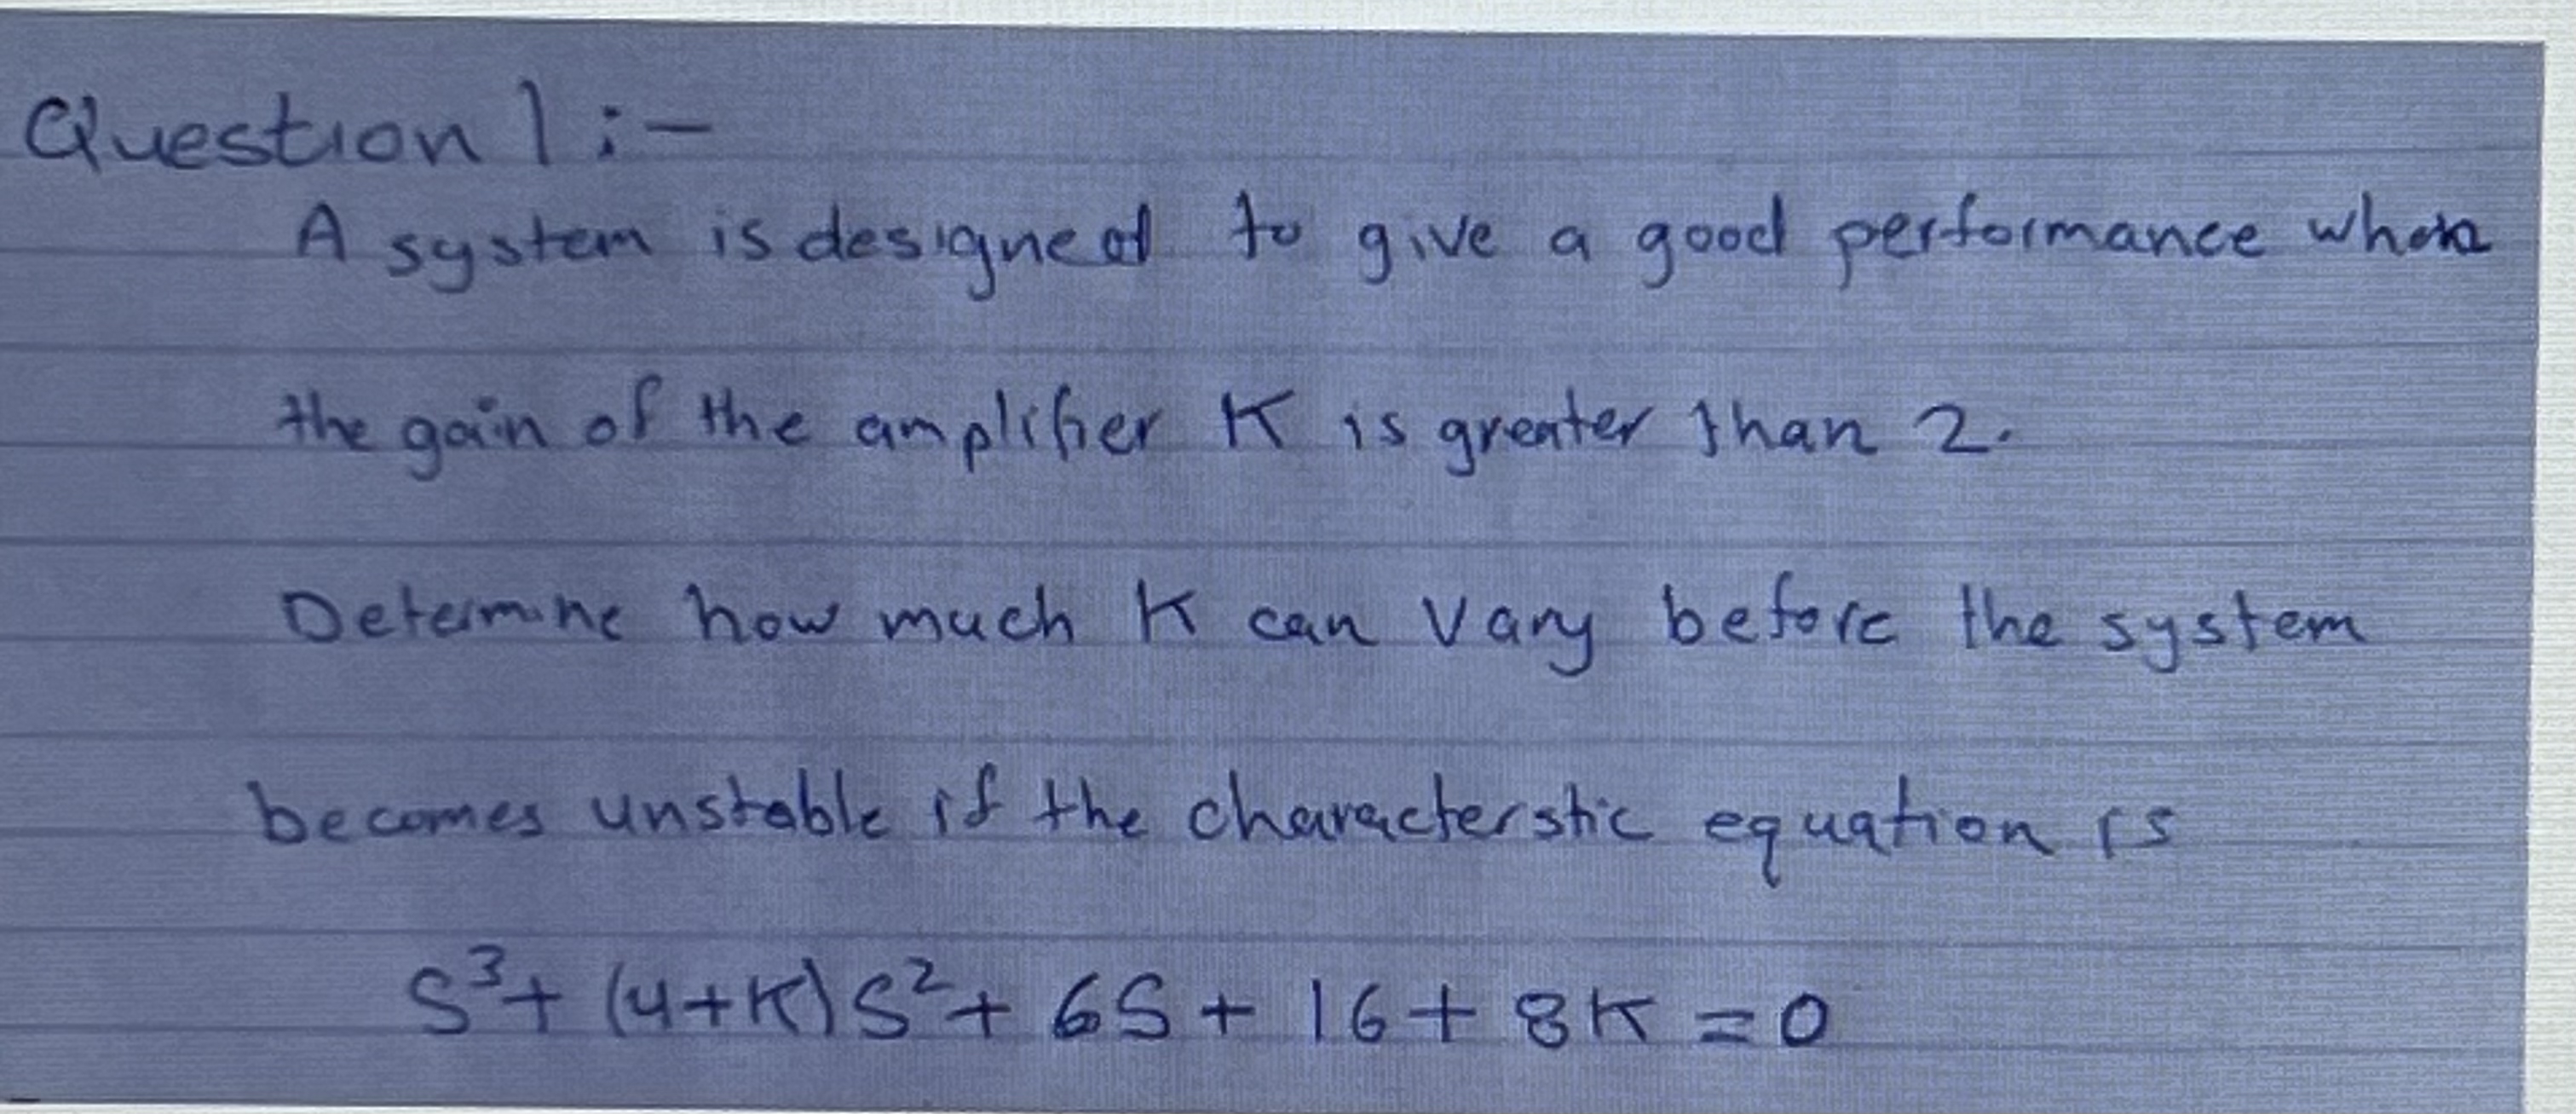 Question 1 :-
A system is designed to give a good performance when
the gain of the amplifier K is greater than 2.
Determine how much K can vary before the system
becomes unstable if the characterstic equation is
S³ + (4+K)S² + 6S + 16 + 8K = 0